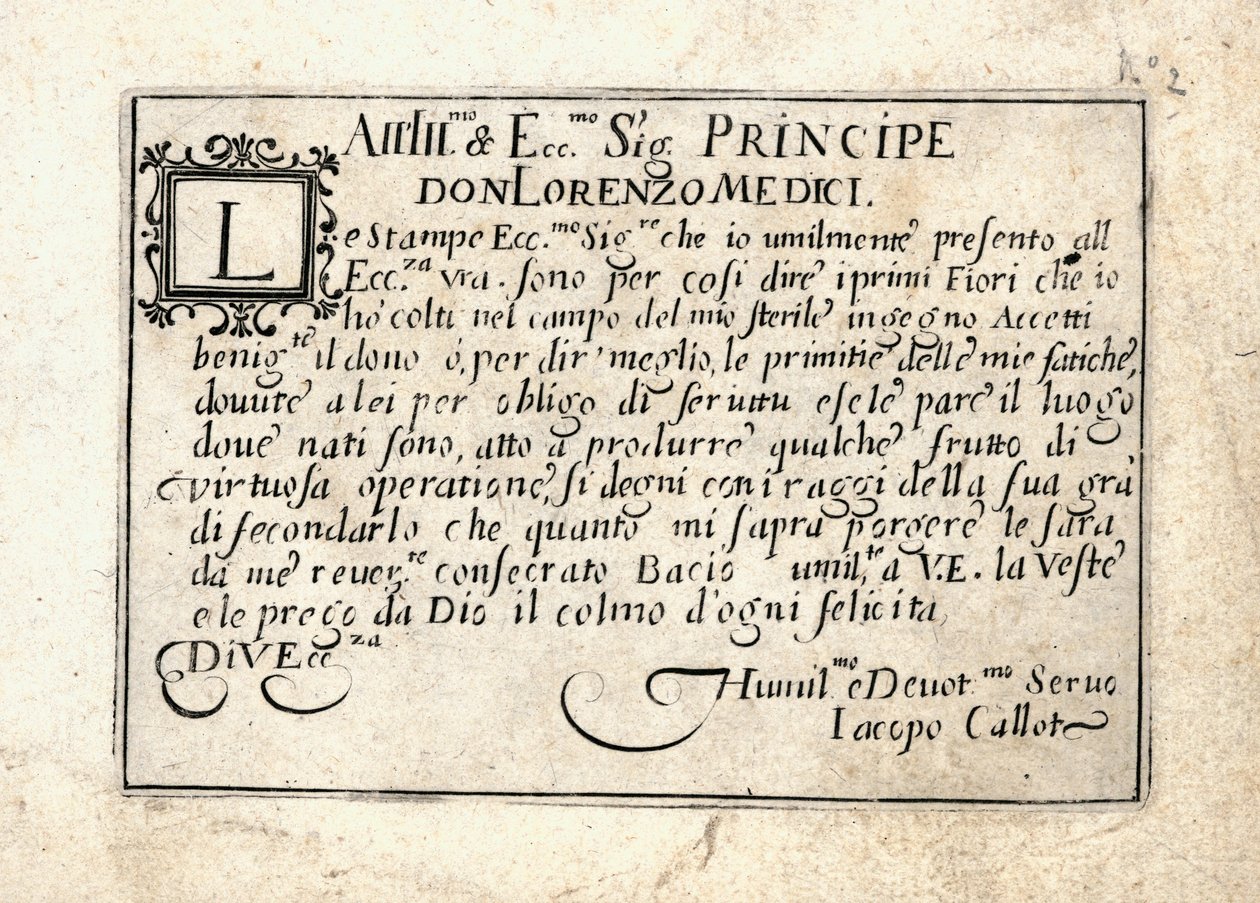 N.º 2
All'Ill.mo & Ecc.mo Sig. PRINCIPE
DON LORENZO MEDICI.
Le Stampe Ecc.mo Sig.re che io umilmente presento all
Ecc.za vra. sono per cosi dire i primi Fiori che io
ho colti nel campo del mio sterile ingegno Accetti
benig.te il dono ó, per dir' meglio, le primitie delle mie fatiche,
douute a lei per obligo di seruitu e se le pare il luogo
doue nati sono, atto a produrre qualche frutto di
virtuosa operatione, si degni con i raggi della sua gra
di fecondarlo che quanto mi saprà porgere le sara
da me reuer.te consecrato Bacio umil.te a V.E. la Veste
e le prego da Dio il colmo d'ogni felicita,
Di V Ecc.za
Humil.mo e Deuot.mo Seruo
Iacopo Callot